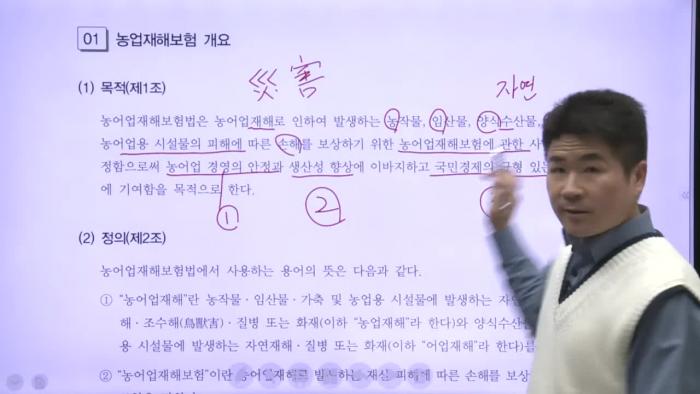 01 농어업재해보험 개요
災害
자연
(1) 목적(제1조)
농어업재해보험법은 농어업재해로 인하여 발생하는 농작물, 임산물, 양식수산물,
농어업용 시설물의 피해에 따른 손해를 보상하기 위한 농어업재해보험에 관한 사
정함으로써 농어업 경영의 안정과 생산성 향상에 이바지하고 국민경제의 균형 있는
에 기여함을 목적으로 한다.
① ②
(2) 정의(제2조)
농어업재해보험법에서 사용하는 용어의 뜻은 다음과 같다.
① “농어업재해”란 농작물·임산물·가축 및 농업용 시설물에 발생하는 자연
해·조수해(鳥獸害)·질병 또는 화재(이하 “농업재해”라 한다)와 양식수산
용 시설물에 발생하는 자연재해·질병 또는 화재(이하 “어업재해”라 한다)를
② “농어업재해보험”이란 농어업재해로 발생하는 재산 피해에 따른 손해를 보상